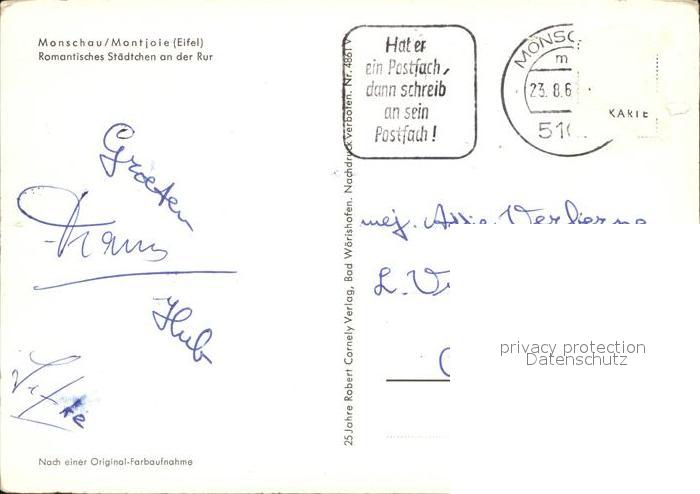 Monschau/Montjoie (Eifel)
Romantisches Städtchen an der Rur
Hat er
ein Postfach,
dann schreib
an sein
Postfach!
MONSC
m
23.8.6
51
KARTE
25 Jahre Robert Cornely Verlag, Bad Wörishofen. Nachdruck verboten. Nr. 4861 V
Groeten
Hub
mej.
L. V
privacy protection
Datenschutz
Nach einer Original-Farbaufnahme